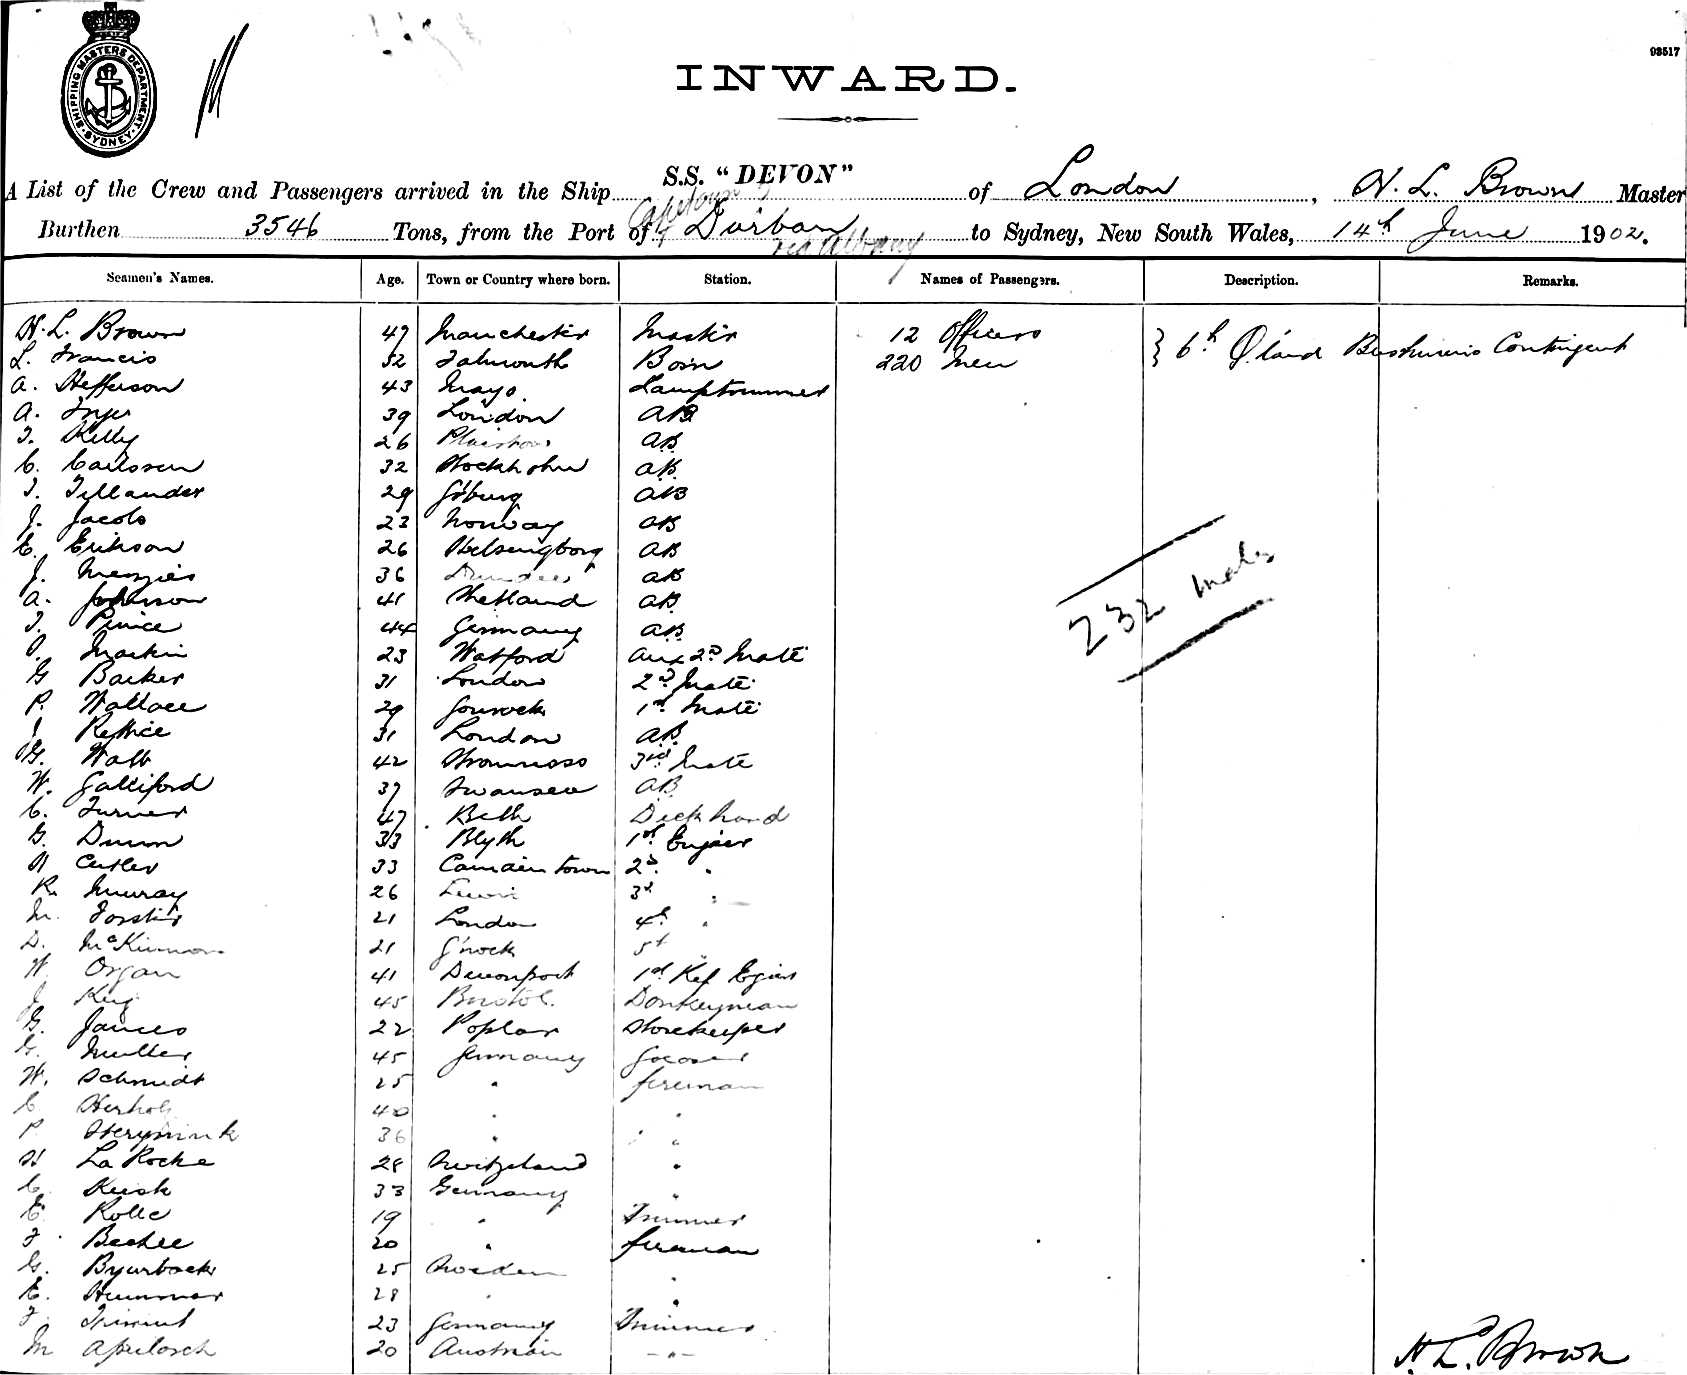 SHIPPING MASTERS DEPARTMENT. SYDNEY
93517
INWARD.
A List of the Crew and Passengers arrived in the Ship S.S. "DEVON" of London, H. L. Brown Master
Burthen 3546 Tons, from the Port of Capetown & Durban via Albany to Sydney, New South Wales, 14th June 1902.
Seamen's Names. Age. Town or Country where born. Station. Names of Passengers. Description. Remarks.
H. L. Brown 47 Manchester Master 12 Officers } 6th Q'land Bushmen's Contingent
L. Francis 52 Falmouth Bosn 220 Men
A. Hefferson 43 Mayo Lamptrimmer
A. Frye 39 London AB
T. Kelly 26 Plaistow AB
C. Carlssen 32 Stockholm AB
T. Tillander 29 G'burg AB
J. Jacobs 23 Norway AB
E. Erikson 26 Helsingborg AB
J. Menzies 36 Dundee AB
A. Johnson 41 Shetland AB
232 males
T. Prince 44 Germany AB
Mackin 23 Watford Aux 2nd Mate
G Barker 31 London 2nd Mate
P. Wallace 29 Gourock 1st Mate
J 31 London AB
G. Watt 42 Stromness 3rd Mate
W. Galliford 37 Swansea AB
C. Turner 47 Bath Deck hand
G. Dunn 33 Blyth 1st Engineer
H Cutler 33 Camden town 2nd "
R. Murray 26 Lewis 3rd "
M. Forster 21 London 4th "
D. McKinnon 21 G'nock 5th "
W. Organ 41 Devonport 1st Ref Eginr
J King 45 Bristol. Donkeyman
G. James 22 Poplar Storekeeper
G. Muller 45 Germany Greaser
W. Schmidt 25 " fireman
C Herholz 40 " "
P 36 " "
H La Roche 28 Switzeland "
C. Kusk 33 Germany "
E. Rolle 19 " Trimmer
F. Bechee 20 " fireman
G. Byurback 25 Sweden "
E. Hummar 28 " "
F. 23 Germany Trimmer
M 20 Austrian "
H. L. Brown